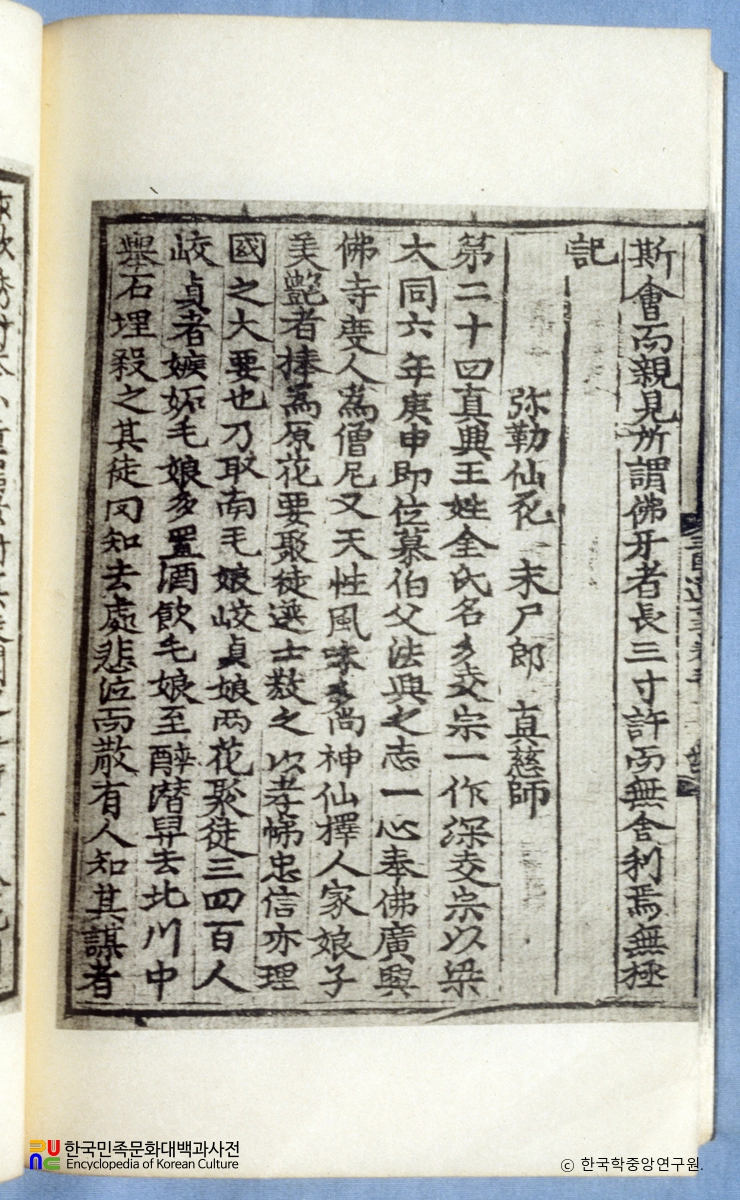 斯會而親見所謂佛牙者長三寸許而無舍利焉無極
記
弥勒仙花 末尸郎 真慈師
第二十四真興王姓金氏名彡麥宗一作深麥宗以梁
大同六年庚申即位慕伯父法興之志一心奉佛廣興
佛寺度人爲僧尼又天性風味多尚神仙擇人家娘子
美艶者捧爲原花要聚徒選士敎之以孝悌忠信亦理
國之大要也乃取南毛娘峧貞娘兩花聚徒三四百人
峧貞者嫉妬毛娘多置酒飮毛娘至醉潛舁去北川中
擧石埋殺之其徒罔知去處悲泣而散有人知其謀者
한국민족문화대백과사전
Encyclopedia of Korean Culture
© 한국학중앙연구원.